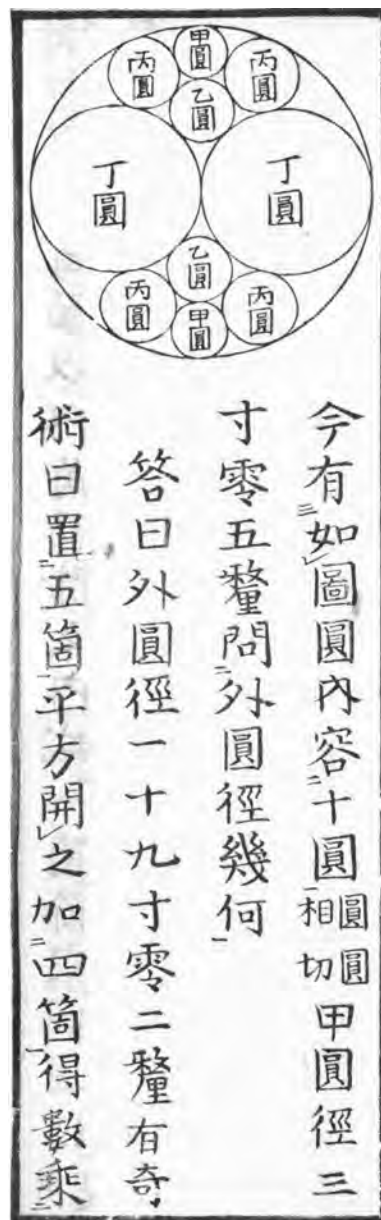 甲圓
丙圓
丙圓
乙圓
丁圓
丁圓
乙圓
丙圓
丙圓
甲圓
今有如圖圓內容十圓圓圓相切甲圓徑三
寸零五釐問外圓徑幾何
答曰外圓徑一十九寸零二釐有奇
術曰置五箇平方開之加四箇得數乘